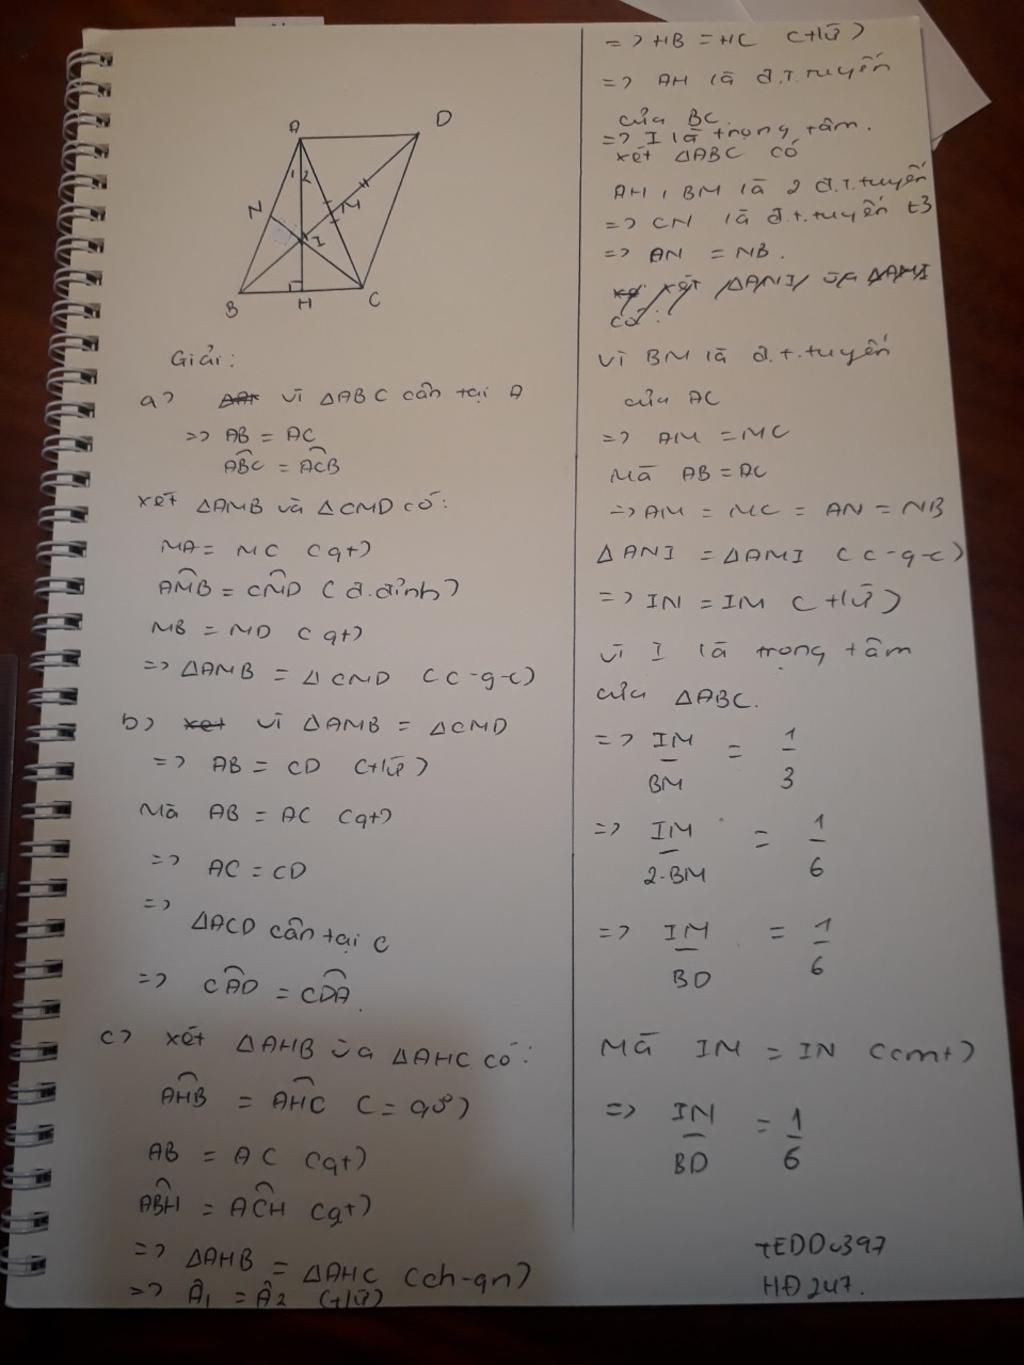 A
D
1 2
N
M
I
B
H
C
Giải:
a) vì △ABC cân tại A
=> AB = AC
ABC = ACB
xét △AMB và △CMD có:
MA = MC (gt)
AMB = CMD (đ.đỉnh)
MB = MD (gt)
=> △AMB = △CMD (c-g-c)
b) xét vì △AMB = △CMD
=> AB = CD (+/ứ)
Mà AB = AC (gt)
=> AC = CD
=> △ACD cân tại C
=> CAD = CDA.
c) xét △AHB và △AHC có:
AHB = AHC (= 90°)
AB = AC (gt)
ABH = ACH (gt)
=> △AHB = △AHC (ch-gn)
=> Â1 = Â2 (+/ứ)
=> HB = HC (+/ứ)
=> AH là đ.t.tuyến
của BC.
=> I là trọng tâm.
xét △ABC có
AH, BM là 2 đ.t.tuyến
=> CN là đ.t.tuyến t3
=> AN = NB.
xét △ANI và △AMI
có:
vì BM là đ.t.tuyến
của AC
=> AM = MC
Mà AB = AC
=> AM = MC = AN = NB
△ANI = △AMI (c-g-c)
=> IN = IM (+/ứ)
vì I là trọng tâm
của △ABC.
=> IM/BM = 1/3
=> IM/2.BM = 1/6
=> IM/BD = 1/6
Mà IM = IN (cmt)
=> IN/BD = 1/6
HĐ247.